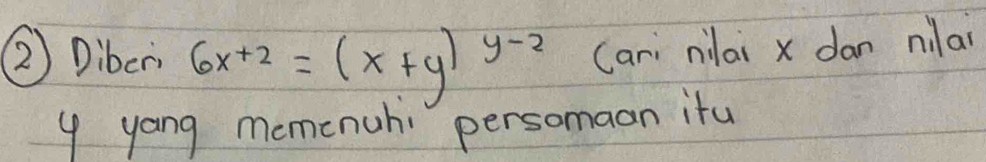 ② Diberi 6x+2 = (x+y) y-2 Cari nilai x dan nilai
y yang memenuhi persamaan itu